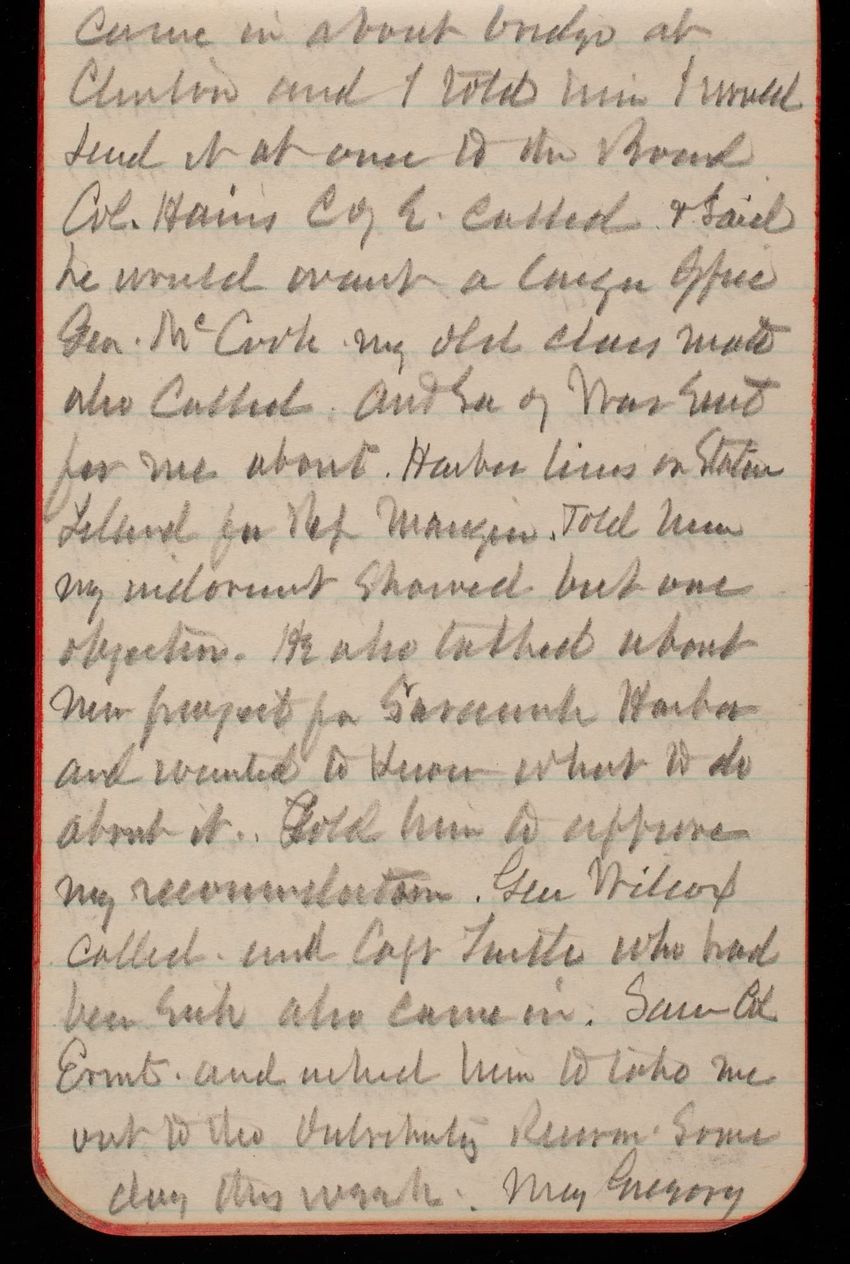 came in about bridge at
Clinton and I told him I would
send it at once to the Board
Col. Hains C of E. called & said
he would want a larger office
Gen. McCook my old class mate
also called. And Sec of War sent
for me about. Harbor lines on Staten
Island for Rep Mangin. Told him
my indorsment showed but one
objection. He also talked about
new project for Savannah Harbor
and wanted to know what to do
about it.. Told him to approve
my recommendation. Gen Wilcox
called. and Capt Tuttle who had
been sick also came in. Saw Col
Ernst. and asked him to take me
out to the Reservoir some
day this week. Maj Gregory